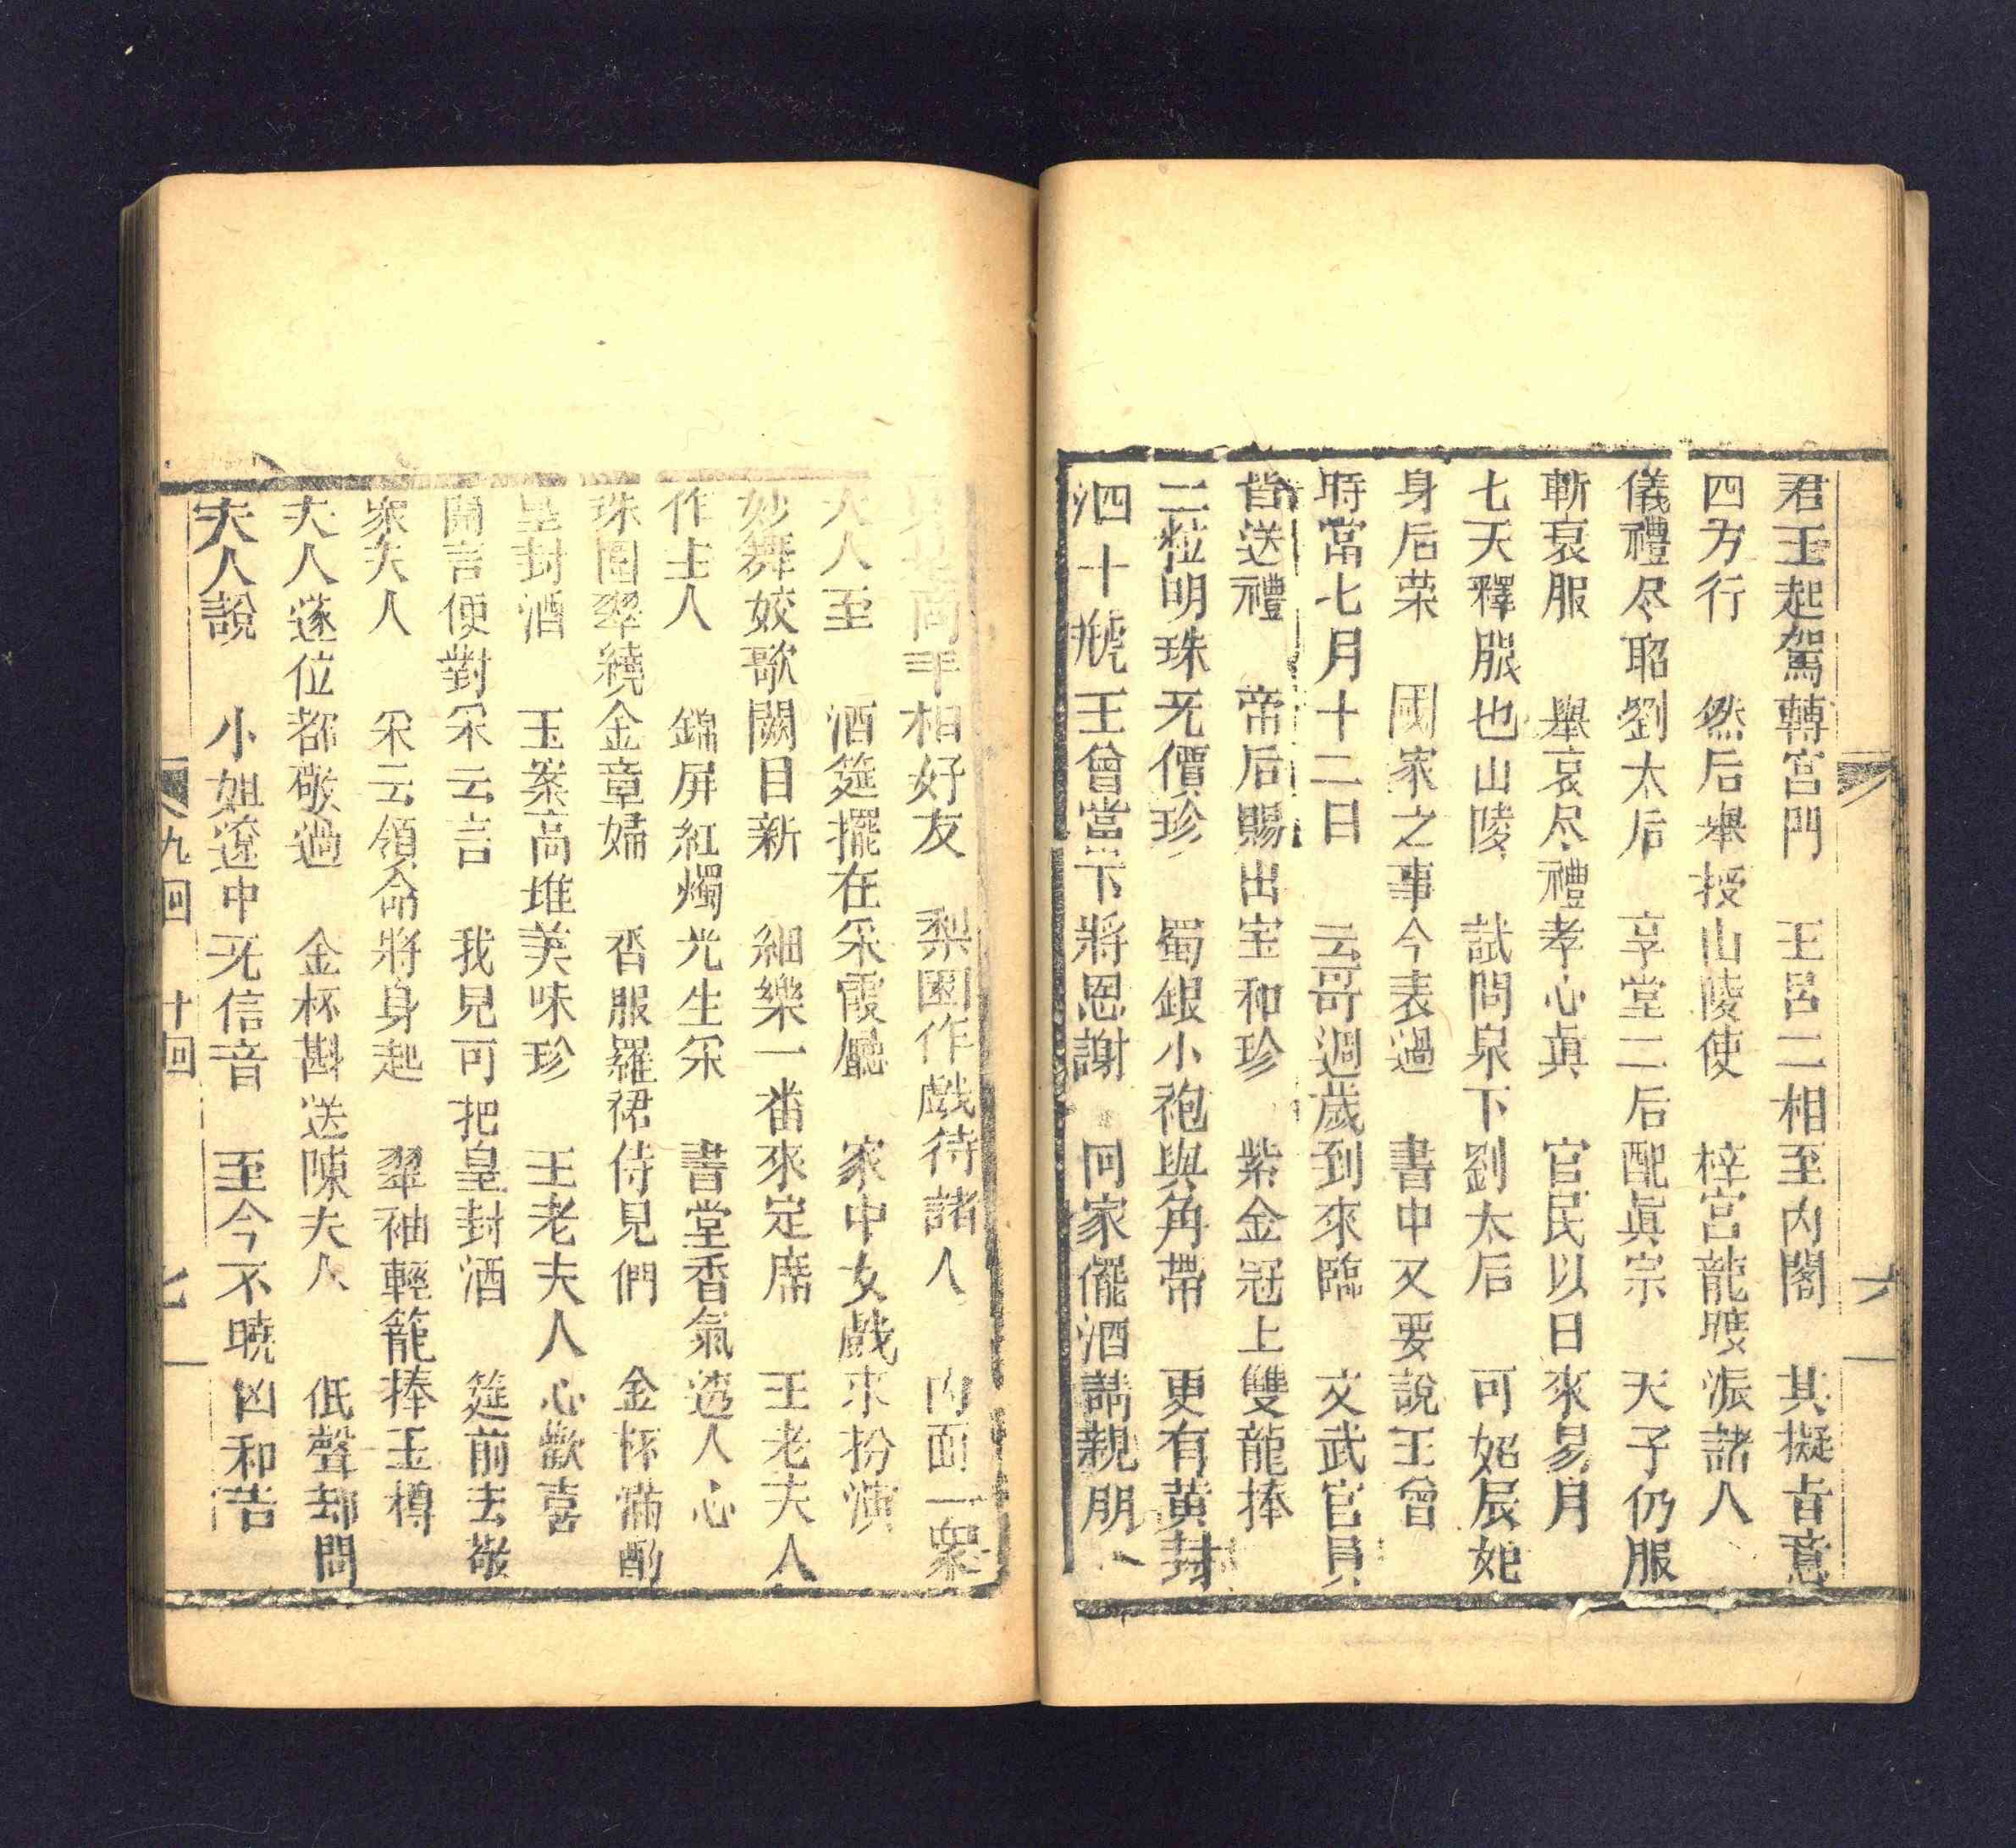 君王起駕轉宮門　王呂二相至內閣　其擬旨意
四方行　然后舉授山陵使　梓宮龍𨍏派諸人
儀禮尽昭劉太后　享堂二后配眞宗　天子仍服
斬哀服　舉哀尽禮孝心眞　官民以日來易月
七天釋服也山陵　試問泉下劉太后　可如辰妃
身后荣　國家之事今表過　書中又要說王曾
時當七月十二日　云哥週歲到來臨　文武官員
皆送禮　帝后賜出宝和珍　紫金冠上雙龍捧
二粒明珠无價珍　蜀銀小袍與角帶　更有黃封
四十瓶　王曾當卞將恩謝　回家擺酒請親朋
相好友　梨園作戲待諸人　內面一衆
夫人至　酒筵擺在采霞廳　家中女戲來扮演
妙舞姣歌闕目新　細樂一畨來定席　王老夫人
作主人　錦屏紅燭光生采　書堂香氣透人心
珠圍翠繞金章婦　香服羅裙侍兒們　金杯滿酌
皇封酒　玉案高堆美味珍　王老夫人心歡喜
開言便對采云言　我兒可把皇封酒　筵前去敬
衆夫人　采云領命將身起　翠袖輕籠捧玉樽
夫人遂位都敬過　金杯斟送陳夫人　低聲却問
夫人說　小姐遼中无信音　至今不曉凶和吉
九回　十回　七
六